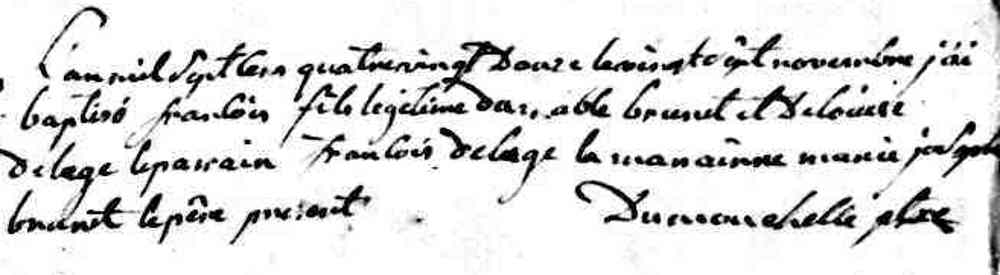 L'an mil sept cens quatre vingt Douze le vingt sept novembre j'ai
baptisé francois fils legitime d'am,able brunet et De louise
delage le parrain francois delage la marainne marie josephe
brunet le père present Dumouchelle ptre